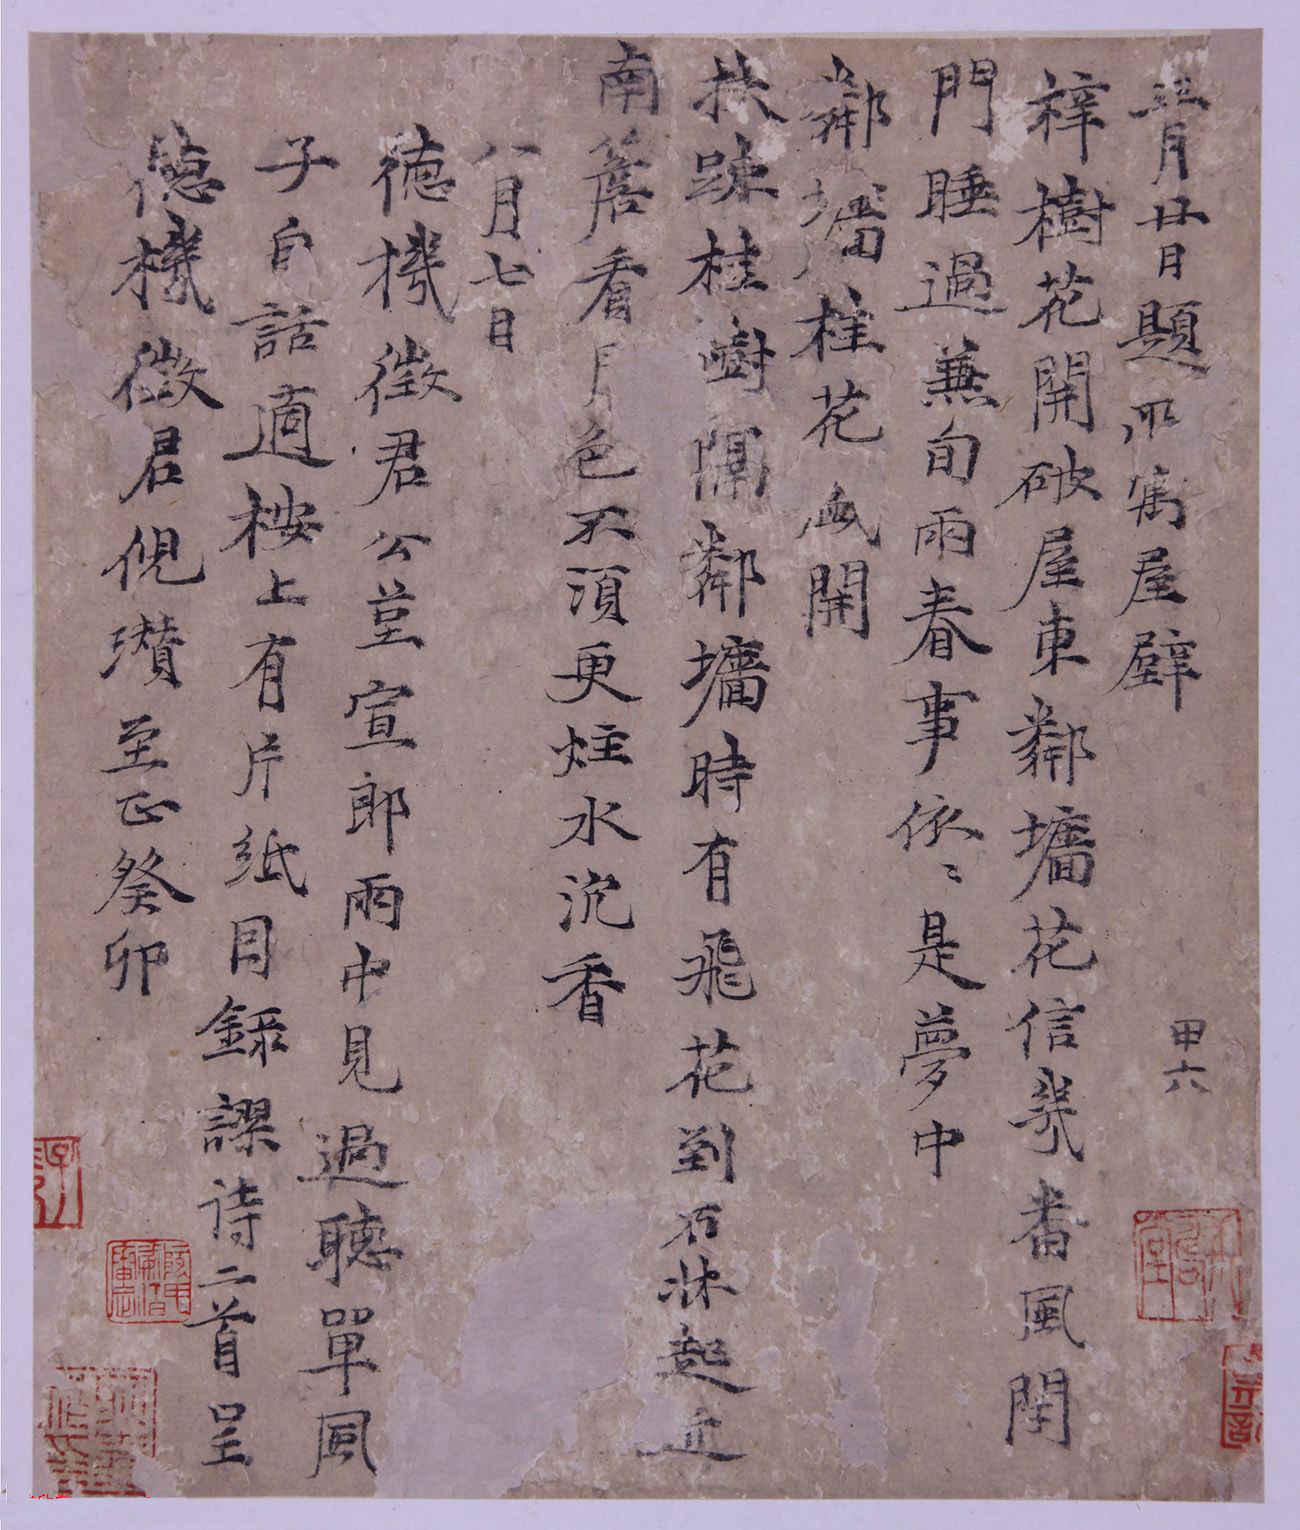 三月廿日題所寓屋壁
梓樹花開破屋東鄰墻花信幾番風閉
門睡過兼旬雨春事依〻是夢中
鄰墻桂花盛開
扶疎桂樹隔鄰墻時有飛花到石牀起近
南簷看月色不須更炷水沉香
八月七日
德機徵君公堂宣郎雨中見過聽單風
子自話適桉上有片紙目錄謬詩二首呈
德機徵君倪瓚至正癸卯
甲六